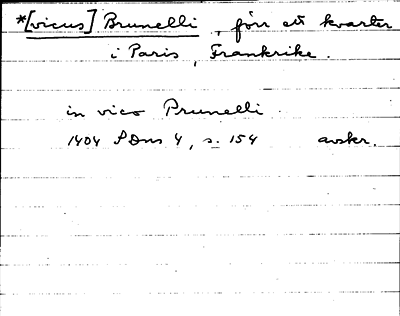 *[vicus] Brunelli, förr ett kvarter
i Paris, Frankrike.
in vico Prunelli.
1404 SDns 4, s. 154 avskr.